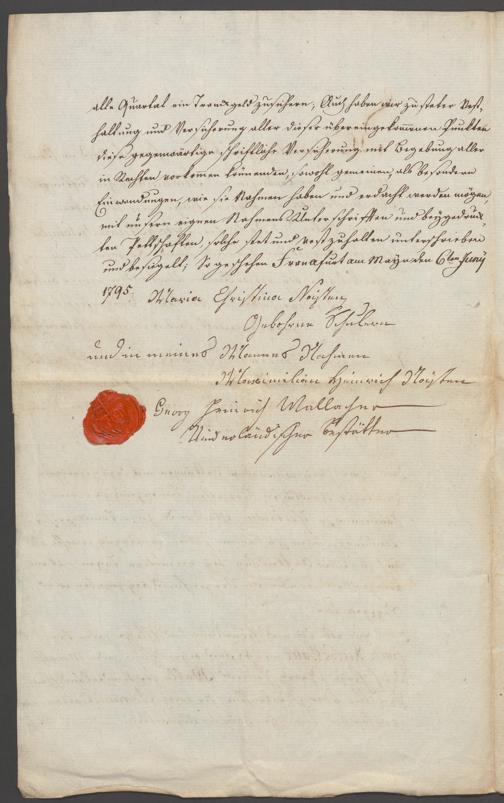 alle Quartal ein Trankgeld zusichern; Auch haben wir zu steter Vest-
haltung und Versicherung aller dieser übereingekommenen Punkten
diese gegenwärtige schriftliche Versicherung mit Begebung aller
in Rechten vorkommen könnenden, sowohl gemeinen, als besondern
Einwendungen, wie sie Nahmen haben und erdacht werden mögen,
mit unsern eignen Nahmens Unterschrifften und beygedruck-
ten Pettschafften, solche stet und vest zu halten unterschrieben
und besiegelt; So geschehen Franckfurt am Mayn den 6ten Junij
1795. Maria Christina
Gebohrne
und in meines Mannes Nahmen
Maximilian Heinrich
Georg Heinrich Wallacher
Niederländischer Bestätter